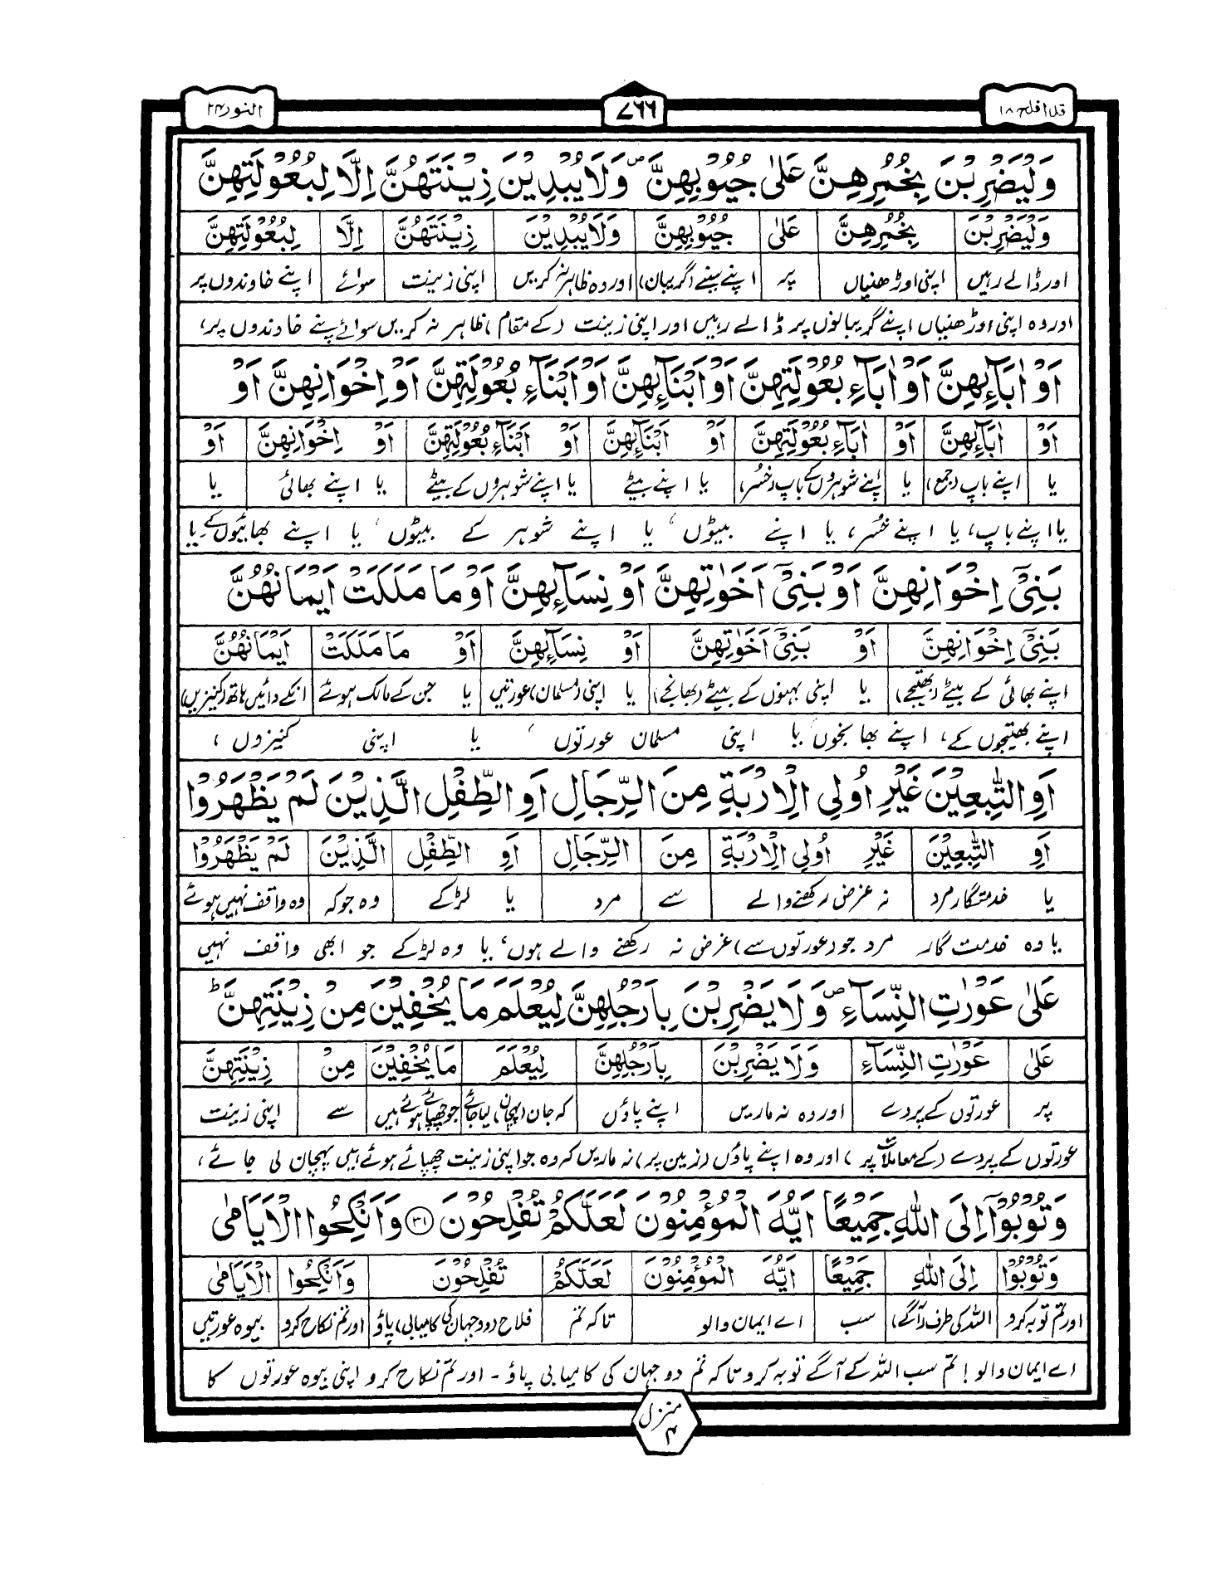 قد افلح ١٨
٧٦٦
النور ٢٤
وَلْيَضْرِبْنَ بِخُمُرِهِنَّ عَلٰى جُيُوْبِهِنَّ ۖ وَلَا يُبْدِيْنَ زِيْنَتَهُنَّ اِلَّا لِبُعُوْلَتِهِنَّ
وَلْيَضْرِبْنَ بِخُمُرِهِنَّ عَلٰى جُيُوْبِهِنَّ وَلَا يُبْدِيْنَ زِيْنَتَهُنَّ اِلَّا لِبُعُوْلَتِهِنَّ
اور ڈالے رہیں اپنی اوڑھنیاں پر اپنے سینے (گریبان) اور وہ ظاہر نہ کریں اپنی زینت سوائے اپنے خاوندوں پر
اور وہ اپنی اوڑھنیاں اپنے گریبانوں پر ڈالے رہیں اور اپنی زینت (کے مقام) ظاہر نہ کریں سوائے اپنے خاوندوں پر،
اَوْ اٰبَآئِهِنَّ اَوْ اٰبَآءِ بُعُوْلَتِهِنَّ اَوْ اَبْنَآئِهِنَّ اَوْ اَبْنَآءِ بُعُوْلَتِهِنَّ اَوْ اِخْوَانِهِنَّ اَوْ
اَوْ اٰبَآئِهِنَّ اَوْ اٰبَآءِ بُعُوْلَتِهِنَّ اَوْ اَبْنَآئِهِنَّ اَوْ اَبْنَآءِ بُعُوْلَتِهِنَّ اَوْ اِخْوَانِهِنَّ اَوْ
یا اپنے باپ (جمع) یا اپنے شوہروں کے باپ (خسر) یا اپنے بیٹے یا اپنے شوہروں کے بیٹے یا اپنے بھائی یا
یا اپنے باپ، یا اپنے خسر، یا اپنے بیٹوں، یا اپنے شوہر کے بیٹوں، یا اپنے بھائیوں کے یا
بَنِيْٓ اِخْوَانِهِنَّ اَوْ بَنِيْٓ اَخَوٰتِهِنَّ اَوْ نِسَآئِهِنَّ اَوْ مَا مَلَكَتْ اَيْمَانُهُنَّ
بَنِيْٓ اِخْوَانِهِنَّ اَوْ بَنِيْٓ اَخَوٰتِهِنَّ اَوْ نِسَآئِهِنَّ اَوْ مَا مَلَكَتْ اَيْمَانُهُنَّ
اپنے بھائی کے بیٹے (بھتیجے) یا اپنی بہنوں کے بیٹے (بھانجے) یا اپنی (مسلمان) عورتیں یا جن کے مالک ہوئے انکے دائیں ہاتھ (کنیزیں)
اپنے بھتیجوں کے، اپنے بھانجوں یا اپنی مسلمان عورتوں، یا اپنی کنیزوں،
اَوِ التّٰبِعِيْنَ غَيْرِ اُولِي الْاِرْبَةِ مِنَ الرِّجَالِ اَوِ الطِّفْلِ الَّذِيْنَ لَمْ يَظْهَرُوْا
اَوِ التّٰبِعِيْنَ غَيْرِ اُولِي الْاِرْبَةِ مِنَ الرِّجَالِ اَوِ الطِّفْلِ الَّذِيْنَ لَمْ يَظْهَرُوْا
یا خدمتگار مرد نہ غرض رکھنے والے سے مرد یا لڑکے وہ جو کہ وہ واقف نہیں ہوئے
یا وہ خدمت گار مرد جو (عورتوں سے) غرض نہ رکھنے والے ہوں، یا وہ لڑکے جو ابھی واقف نہیں
عَلٰى عَوْرٰتِ النِّسَآءِ ۖ وَلَا يَضْرِبْنَ بِاَرْجُلِهِنَّ لِيُعْلَمَ مَا يُخْفِيْنَ مِنْ زِيْنَتِهِنَّ ؕ
عَلٰى عَوْرٰتِ النِّسَآءِ وَلَا يَضْرِبْنَ بِاَرْجُلِهِنَّ لِيُعْلَمَ مَا يُخْفِيْنَ مِنْ زِيْنَتِهِنَّ
پر عورتوں کے پردے اور وہ نہ ماریں اپنے پاؤں کہ جان (پہچان) لیا جائے جو چھپائے ہوئے ہیں سے اپنی زینت
عورتوں کے پردے (کے معاملات پر) اور وہ اپنے پاؤں (زمین پر) نہ ماریں کہ وہ جو اپنی زینت چھپائے ہوئے ہیں پہچان لی جائے،
وَتُوْبُوْٓا اِلَى اللّٰهِ جَمِيْعًا اَيُّهَ الْمُؤْمِنُوْنَ لَعَلَّكُمْ تُفْلِحُوْنَ ﴿٣١﴾ وَاَنْكِحُوا الْاَيَامٰى
وَتُوْبُوْٓا اِلَى اللّٰهِ جَمِيْعًا اَيُّهَ الْمُؤْمِنُوْنَ لَعَلَّكُمْ تُفْلِحُوْنَ وَاَنْكِحُوا الْاَيَامٰى
اور تم توبہ کرو اللہ کی طرف (آگے) سب اے ایمان والو تا کہ تم فلاح (دو جہان کی کامیابی) پاؤ اور تم نکاح کرو بیوہ عورتیں
اے ایمان والو! تم سب اللہ کے آگے توبہ کرو تا کہ تم دو جہان کی کامیابی پاؤ۔ اور تم نکاح کرو اپنی بیوہ عورتوں کا
منزل ٤